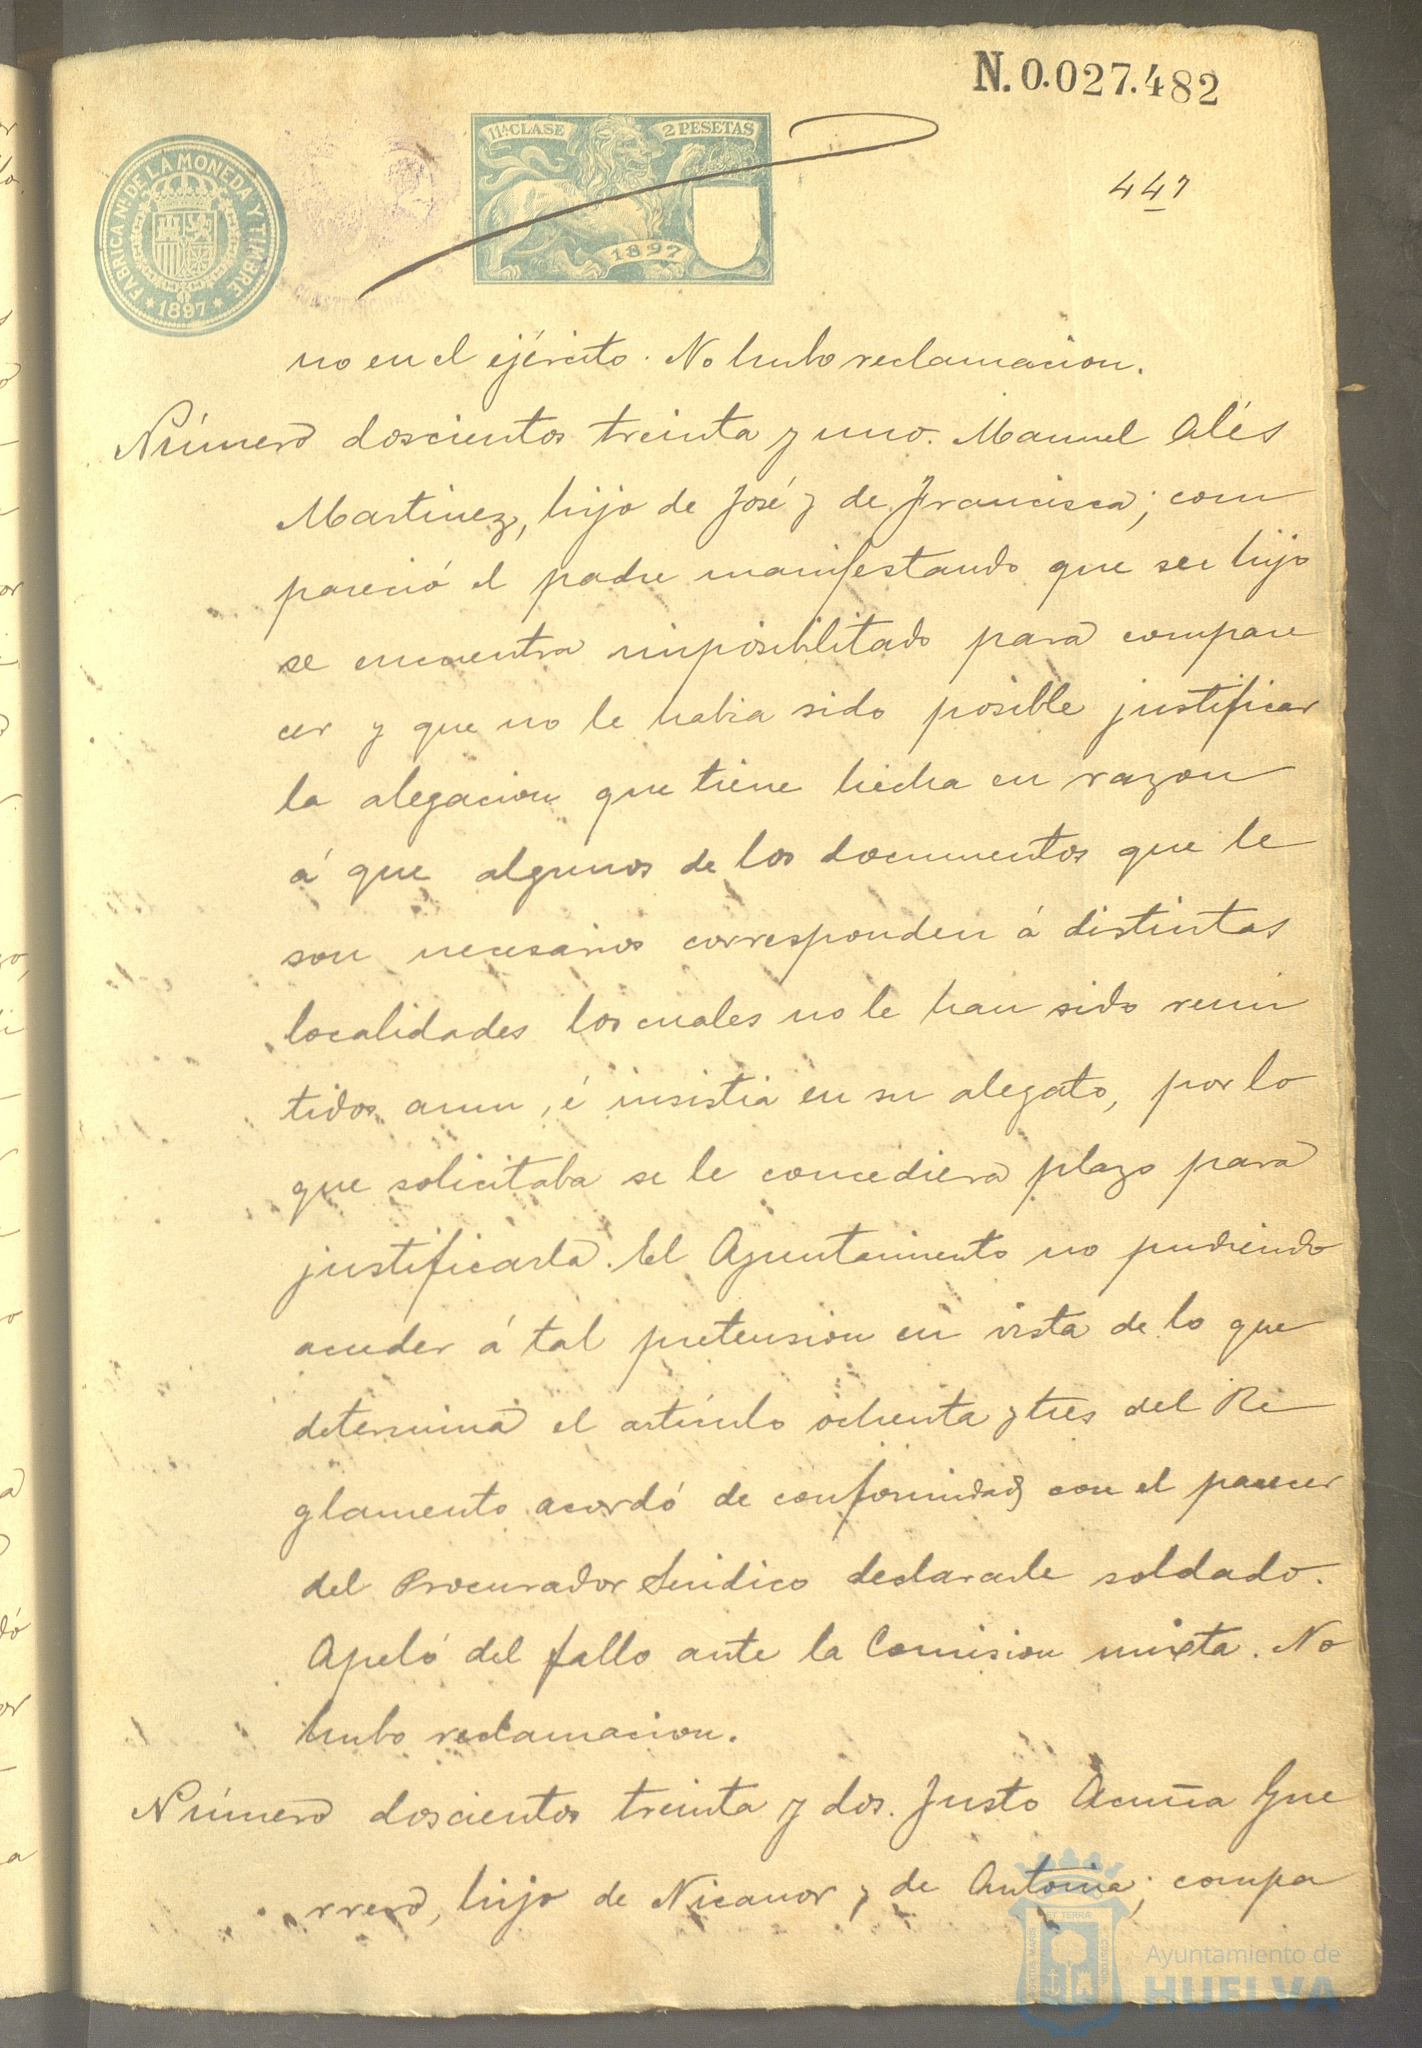 N. 0.027.482
11ª CLASE 2 PESETAS
FABRICA Nl. DE LA MONEDA Y TIMBRE
1897
1897
447
no en el ejército. No hubo reclamacion.
Número doscientos treinta y uno. Manuel Alés
Martinez, hijo de José y de Francisca; com
pareció el padre manifestando que su hijo
se encuentra imposibilitado para compare
cer y que no le habia sido posible justificar
la alegacion que tiene hecha en razon
á que algunos de los documentos que le
son necesarios corresponden á distintas
localidades los cuales no le han sido remi
tidos aun, é insistia en su alegato, por lo
que solicitaba se le concediera plazo para
justificarla. El Ayuntamiento no pudiendo
acceder á tal pretension en vista de lo que
determina el artículo ochenta y tres del Re
glamento acordó de conformidad con el parecer
del Procurador Sindico declararle soldado.
Apeló del fallo ante la Comision mixta. No
hubo reclamacion.
Número doscientos treinta y dos. Justo Acuña Gue
rrero, hijo de Nicanor y de Antonia; compa
Ayuntamiento de
HUELVA